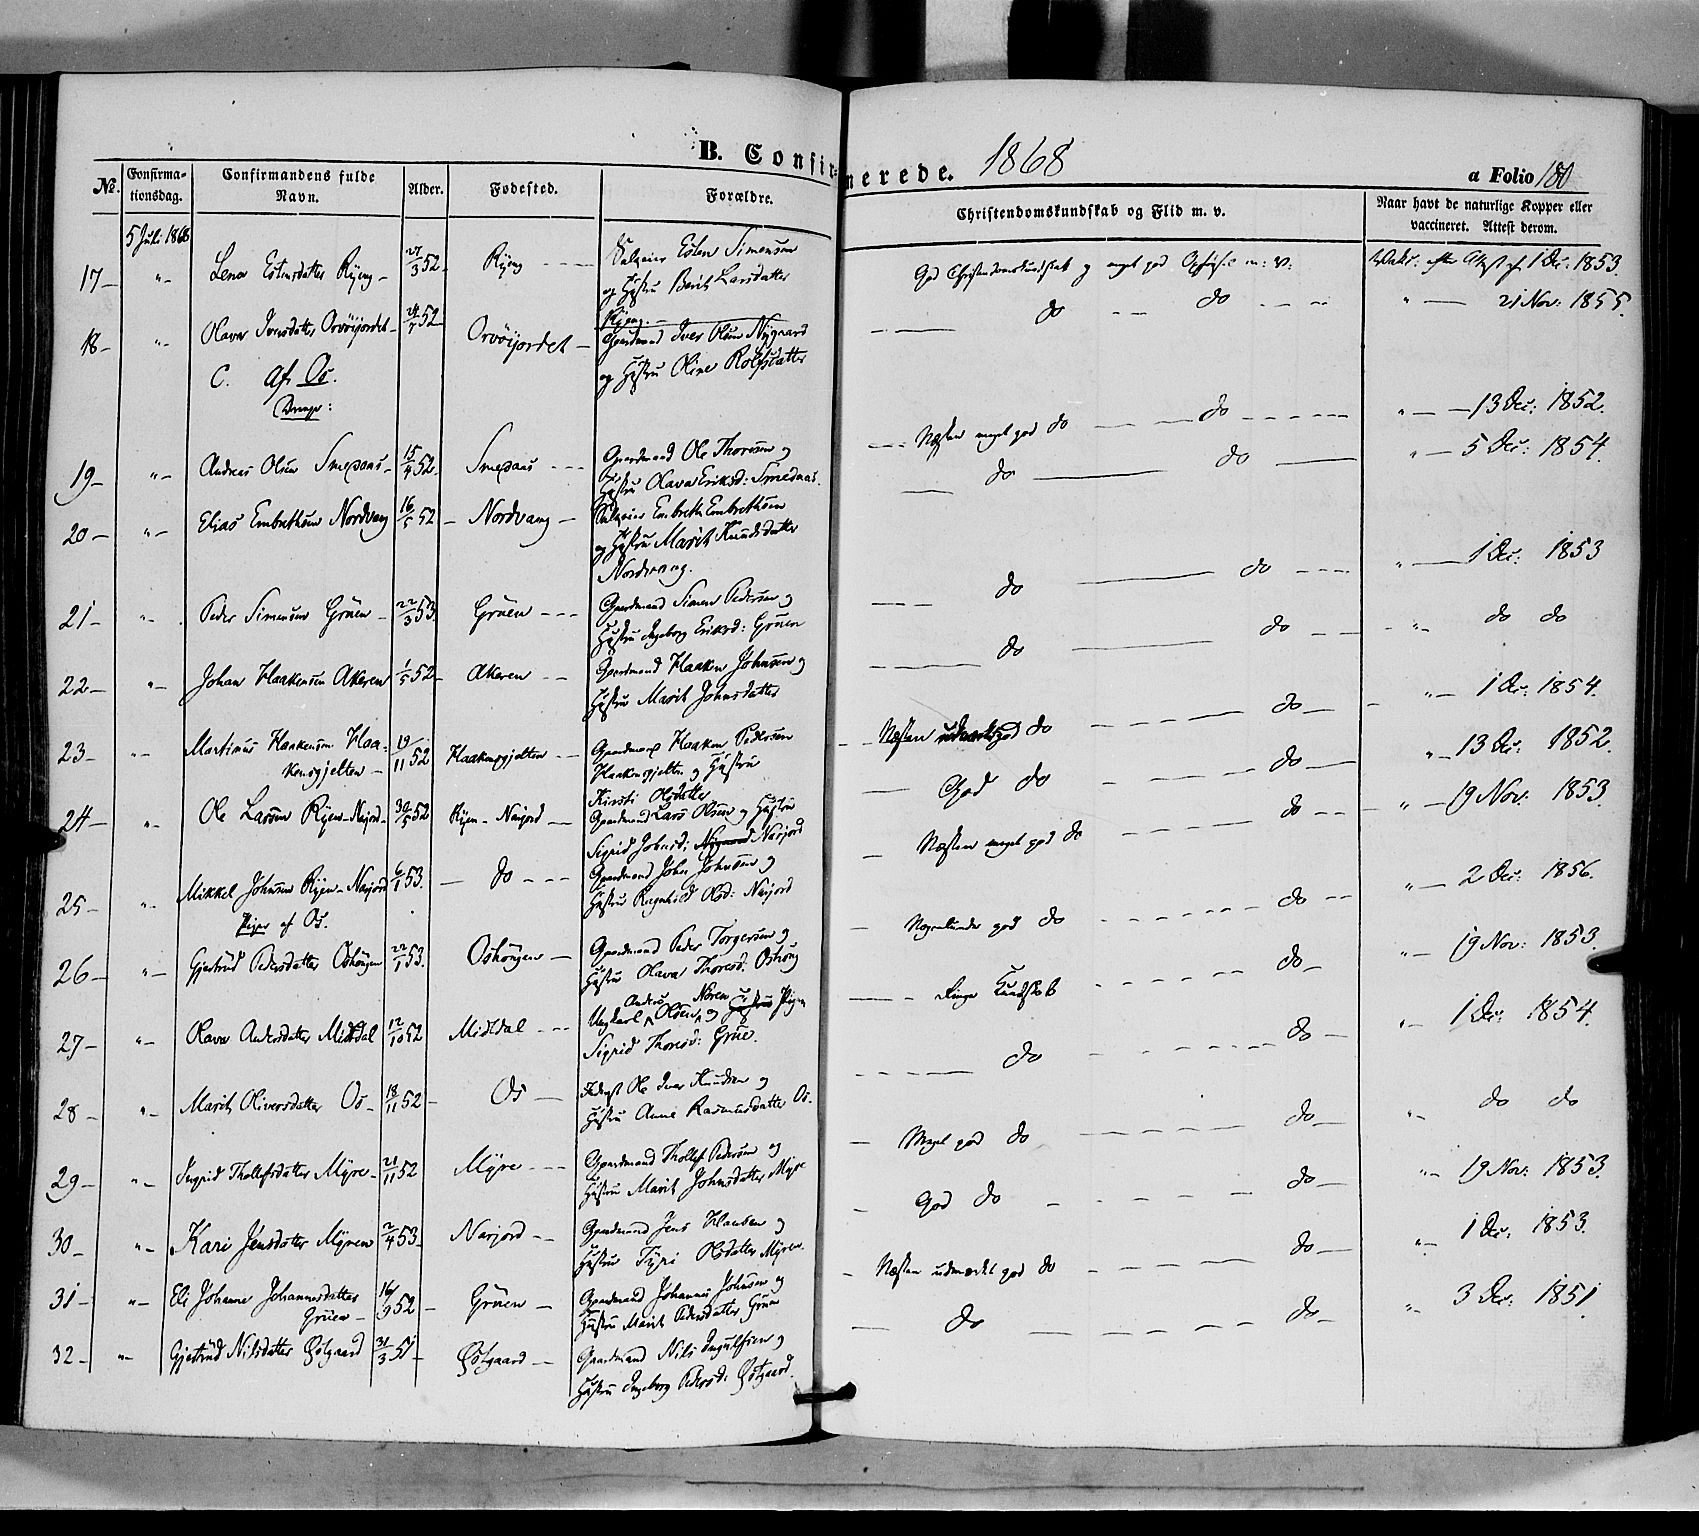 B. Confirmerede. 1868
a Folio 180
No. Confirmationsdag. Confirmandens fulde Navn. Alder. Fødested. Forældre. Christendomskundskab og Flid m. v. Naar havt de naturlige Kopper eller vaccineret. Attest derom.
5 Juli 1868
17 - " - Lena Estensdatter Ryeng - 27/3 52 - Ryeng - - - Esten Simensen
og Hustru Berit Larsdatter
Ryeng. -
God Christendomskundskab og meget god Opførsel m: v: Vakc. efter Attest af 1 Dec: 1853.
18 - " - Olava Iversdatter Orvöijordet - 52 - Orvöijordet - Gaardmand Iver Olsen Nygaard
og Hustru Oline Rolfsdatter
do - - do - - - " - 21 Nov: 1855.
C. Af Os.
Drenge:
19 - " - Andreas Olsen Smeaaas - 15/4 52 - Gaardmand Ole Thoresen og
Hustru Olava Eriksd: Smedaas.
Næsten meget god do - - do - - - - " - 13 Dec: 1852.
20 - " - Elias Embrethsen Nordvang 16/5 52 - Nordvang - Embreth Embrethsen
og Hustru Marit Knudsdatter
Nordvang.
do - do - " - 5 Dec: 1854.
21 - " - Peder Simensen Grüen - 22/3 53. Grüen - - - Gaardmand Simen Pedersen og
Hustru Ingeborg Eriksd: Grüen
do - do - - - - " - 1 Dec: 1853
22 - " - Johan Haakensen Akeren 1/5 52 - Akeren - - Gaardmand Haaken Johnsen og
Hustru Marit Johnsdatter
do - do - - - " - do do
23 - " - Martinus Haakensen Haakensgjelten - 19/11 52 Haakensgjelten - - Gaardmand Haaken Pedersen
Haakensgjelten og Hustru
Kirsti Olsdatter
Næsten udmærket god do - - - - do - - " - 1 Dec: 1854.
24 - " - Ole Larsen Ryen-Narjord - 30/5 52 Ryen-Narjord - Gaardmand Lars Olsen og Hustru
Sigrid Johnsd: Nygaard Narjord
God do - - - - do - " - 13 Dec: 1852.
25 - " - Mikkel Johnsen Ryen-Narjord 6/1 53. - do - - - Gaardmand John Johnsen og
Hustru Ragnhild Olsd: Narjord
Næsten meget god do - - - - do - - " - 19 Nov: 1853.
Piger af Os.
26 - " - Gjertrud Pedersdatter Oshöugen 22/1 53. Oshöugen - Gaardmand Peder Torgersen og
Hustru Olava Thoresd: Oshöug
Nogenlunde god do - - - - do - - " - 2 Dec: 1856.
27 - " - Olava Andersdatter Midtdal 12/10 52 Midtdal - - - Ungkarl Anders Olsen Noren og Hustru Pigen
Sigrid Thoresd: Grüe.
ringe Kundskab - - - - do - " - 19 Nov: 1853.
28 - " - Marit Oliversdatter Os - 18/11 52 - Os - Ole Iver Knudsen og
Hustru Anne Rasmusdatter Os.
do - - - - do - " - 1 Dec: 1854.
29 - " - Sigrid Thollefsdatter Myre - 21/11 52 Myre - - - Gaardmand Thollef Pedersen og
Hustru Marit Johnsdatter Myre
Meget god do - - - - do - " - do do
30 - " - Kari Jensdatter Myren 2/4 53 - Narjord - - Gaardmand Jens Hansen og
Hustru Tyri Olsdatter Myren.
God do - - - - do - " - 19 Nov: 1853.
31 - " - Eli Johanne Johannesdatter
Grüen - 16/9 52 - Grüen - Gaardmand Johannes Johnsen og
Hustru Marit Pedersdatter Grüen
Næsten udmærket god do - - - do - " - 1 Dec: 1853.
32 - " - Gjertrud Nilsdatter Östgaard 31/3 51 - Östgaard - Gaardmand Nils Ingulfsen og
Hustru Ingeborg Pedersd: Östgaard.
do - - - - do - " - 3 Dec: 1851